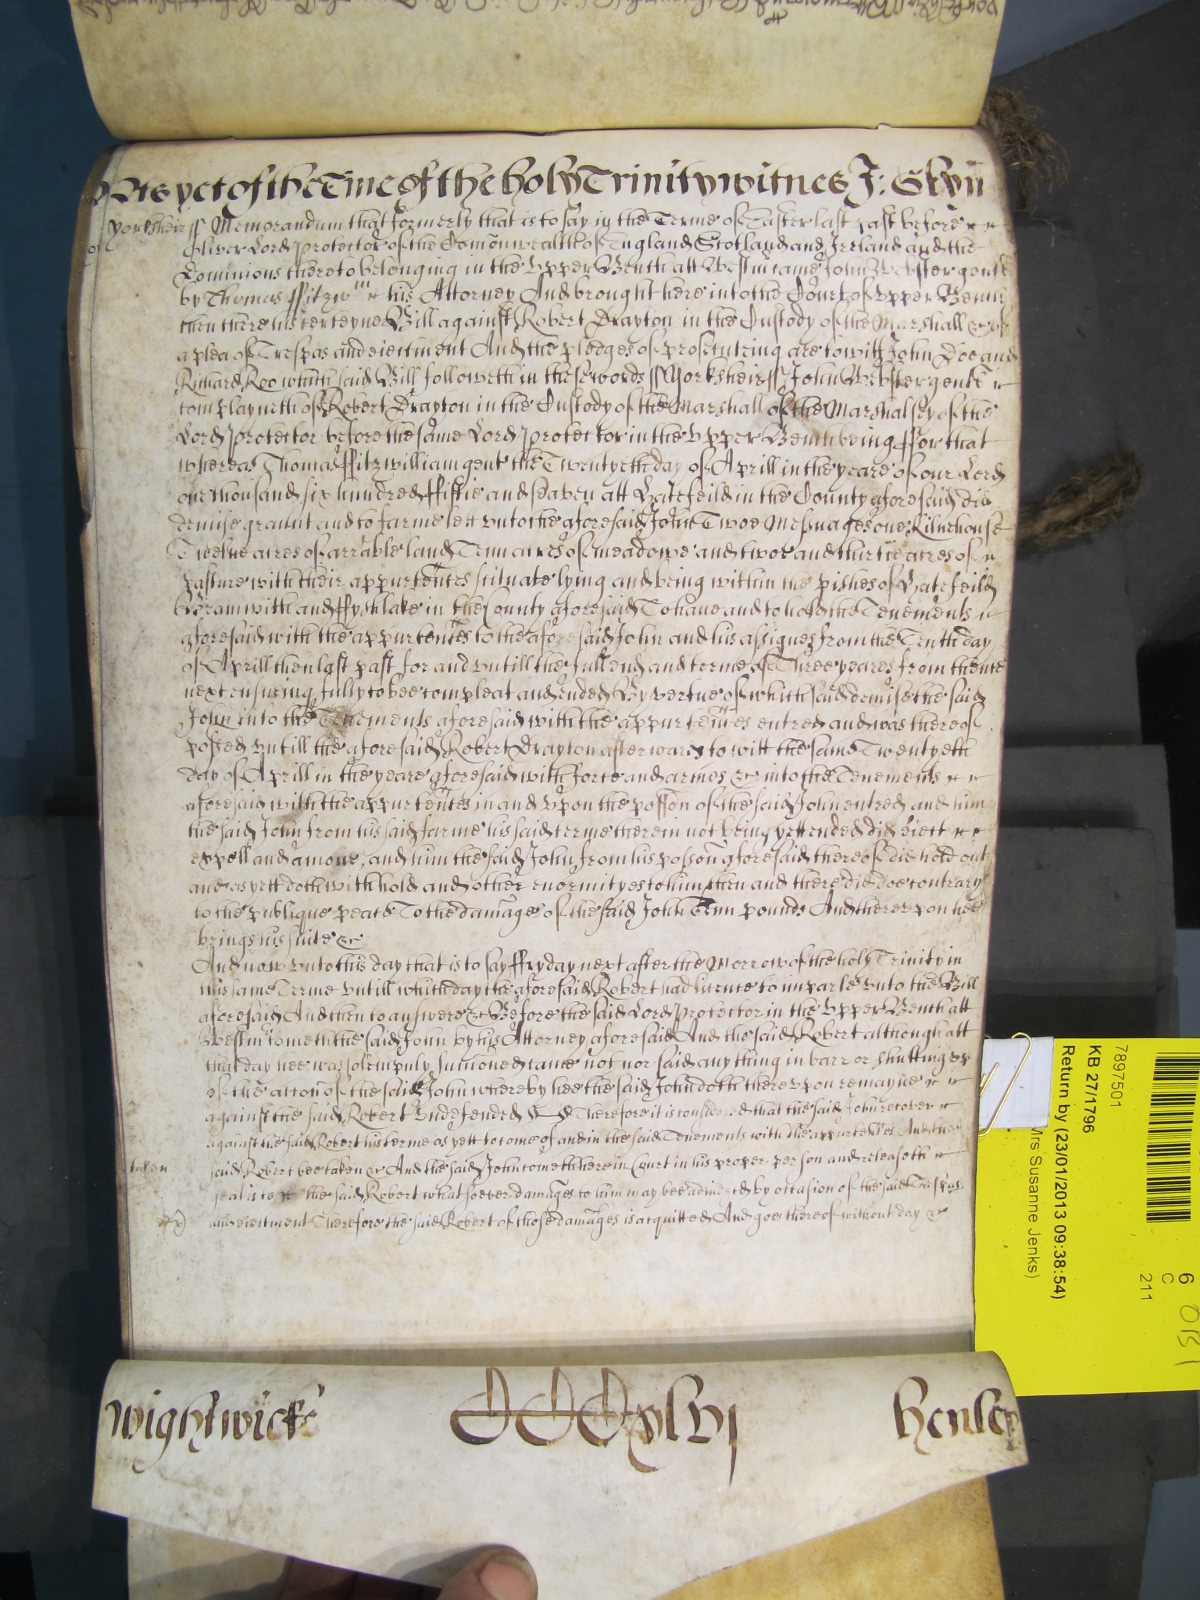 As yet of the Time of the holy Trinity witnes J: Skyn
Yorksheir ss Memorandum that formerly that is to say in the Terme of Easter last past before
Oliver Lord Protector of the Comonwealth of England Scotland and Ireland and the
Dominions thereto belonging in the Upper Bench att Westm came John Webster gent
by Thomas Ffitzwm his Attorney And brought here into the Court of Upper Bench
then there his certeyne Bill against Robert Drayton in the Custody of the Marshall &c of
a plea of Trespas and eiectment And the pledges of prosecuteing are to witt John Doe and
Richard Roo which said Bill followeth in these words ss Yorksheir ss John Webster gent
complayneth of Robert Drayton in the Custody of the Marshall of the Marshalsey of the
Lord Protector before the same Lord Protector in the Upper Bench being Ffor that
whereas Thomas Ffitzwilliam gent the Twentyeth day of Aprill in the yeare of our Lord
one thousand six hundred Ffiftie and seaven att Hatefeild in the County aforesaid did
demise graunt and to farme lett unto the aforesaid John Twoe Mesuages one Kilnehouse
Twelve acres of arrable land Tenn acres of meadowe and twoe and thirtie acres of
pasture with their appurtentes scituate lying and being within the pishes of Hatefeild
and Ffyshlake in the County aforesaid To have and to hold the Tenements
aforesaid with the appurtentes to the aforesaid John and his assignes from the Tenth day
of Aprill then last past for and untill the full end and terme of Three yeares from thence
next ensueing fully to bee compleat and ended By vertue of which said demise the said
John into the Tenements aforesaid with the appurtentes entred and was thereof
possed untill the aforesaid Robert Drayton afterwards to witt the same Twentyeth
day of Aprill in the yeare aforesaid with force and armes &c into the Tenements
aforesaid with the appurtentes in and upon the possion of the said John entred and him
the said John from his said farme his said terme therein not being yett ended did eiect
expell and amove, and him the said John from his posson aforesaid thereof did hold out
and as yett doth withhold and other enormityes to him then and there did doe contrary
to the publique peace To the damages of the said John Tenn pounds And thereupon hee
brings his suite &c
And now unto this day that is to say Ffryday next after the Morrow of the holy Trinity in
this same Terme untill which day the aforesaid Robert had licence to imparle unto the Bill
aforesaid And then to answere &c Before the said Lord Protector in the Upper Bench att
Westm cometh the said John by his Attorney aforesaid And the said Robert although att
that day hee was solempnly sumoned came not nor said any thing in barr or shutting up
of the accon of the said John whereby hee the said John doth thereupon remayne
against the said Robert Undefended &c Therefore it is considered that the said John recover
against the said Robert his terme as yett to come of and in the said Tenements with the appurtentes And the
taken said Robert bee taken &c And the said John cometh here in Court in his proper person and releaseth
gratis to the said Robert whatsoever damages to him may bee adiudged by occasion of the said Trespas
and eiectment Therefore the said Robert of those damages is acquitted And goes thereof without day &c
Wightwicke CCCxlvj Henley
7897501
KB 27/1796
Return by (23/01/2013 09:38:54)
Mrs Susanne Jenks)
6
C
211